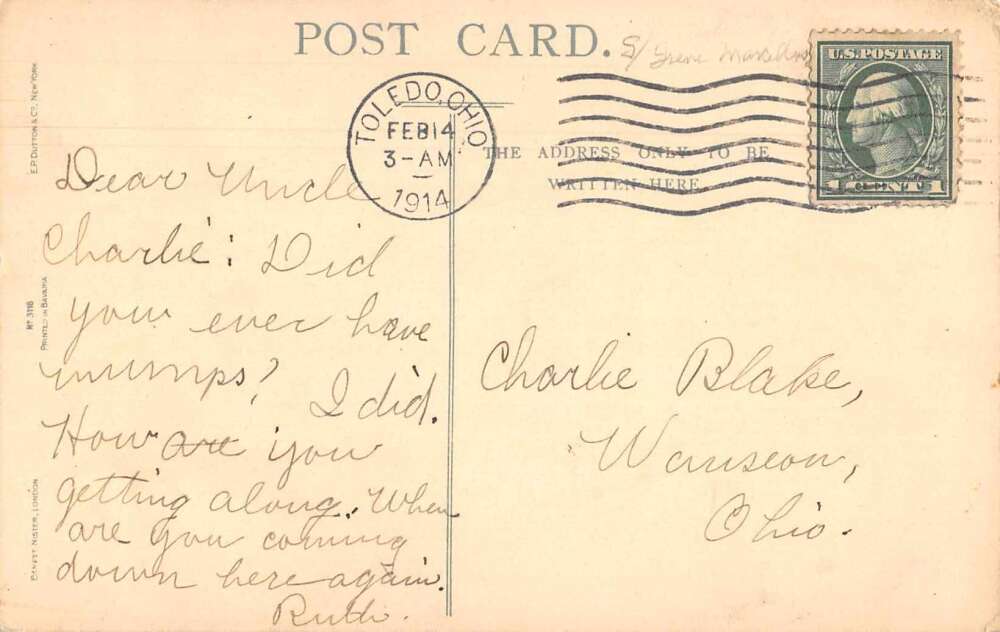 POST CARD.
S/ Irene
U.S. POSTAGE
1 CENT 1
TOLEDO, OHIO
FEB 14
3-AM
1914
THE ADDRESS ONLY TO BE
WRITTEN HERE
Dear Uncle
Charlie: Did
you ever have
mumps?
I did.
How are you
getting along. When
are you coming
down here again.
Ruth.
Charlie Blake,
Wauseon,
Ohio.
E.P. DUTTON & CO. NEW YORK
No 3118
PRINTED IN BAVARIA
ERNEST NISTER, LONDON